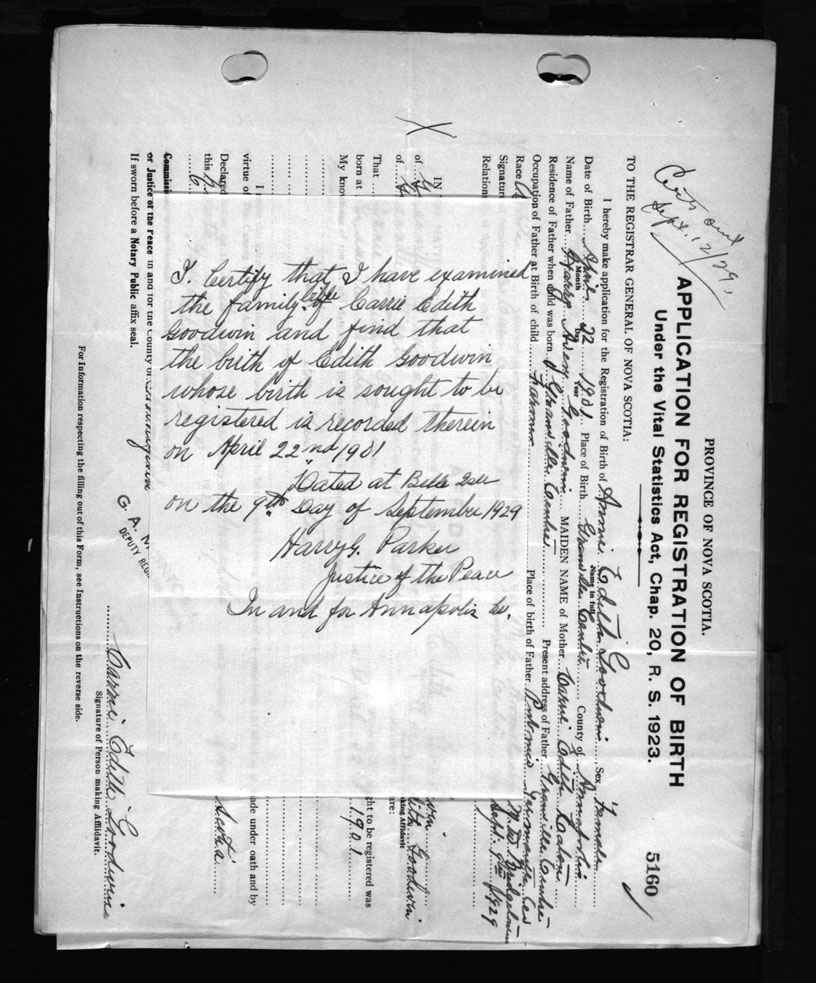 Cert out
Sept. 12/29.
PROVINCE OF NOVA SCOTIA.
APPLICATION FOR REGISTRATION OF BIRTH
Under the Vital Statistics Act, Chap. 20, R. S. 1923.
5160
TO THE REGISTRAR GENERAL OF NOVA SCOTIA:
I hereby make application for the Registration of Birth of Annie Edith Goodwin Sex Female
Name in full
Date of Birth April 22 1901 Place of Birth Granville Centre County of Annapolis
Month Day Year
Name of Father Harry Avery Goodwin MAIDEN NAME of Mother Carrie Edith Eaton
Residence of Father when child was born Granville Centre Present address of Father Granville Centre
Occupation of Father at Birth of child Farmer Place of birth of Father Pubnico Yarmouth Co
Race
Signature
Sept. 9th 1929
Relations
IN
of
of
That
born at
ght to be registered was
My know
1901
I
virtue of
ade under oath and by
Declared
this
Commiss
or Justice of the Peace in and for the County of
If sworn before a Notary Public affix seal.
G. A.
DEPUTY REG
Carrie Edith Goodwin
Signature of Person making Affidavit.
For Information respecting the filling out of this Form, see Instructions on the reverse side.
I. Certify that I have examined
the family Bible of Carrie Edith
Goodwin and find that
the birth of Edith Goodwin
whose birth is sought to be
registered is recorded therein
on April 22nd 1901
Dated at Belle Isle
on the 9th Day of September 1929
Harry G. Parker
Justice of the Peace
In and for Annapolis Co.